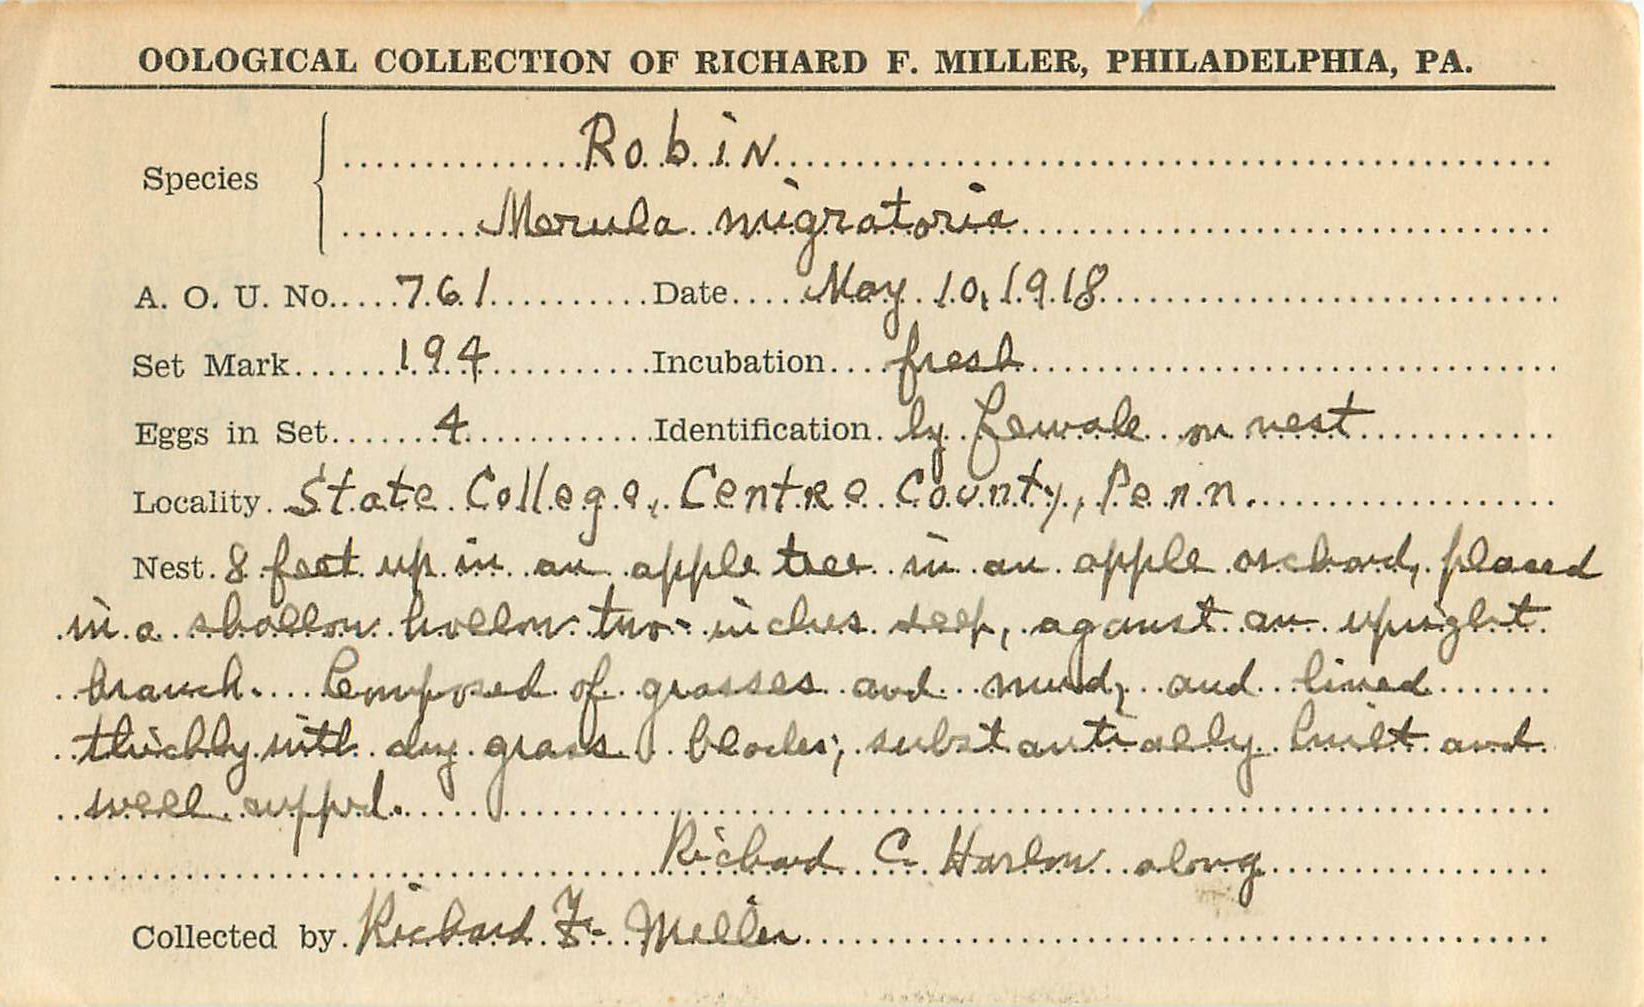 OOLOGICAL COLLECTION OF RICHARD F. MILLER, PHILADELPHIA, PA.
Species
Robin
Merula migratoria
A. O. U. No. 761 Date May 10, 1918
Set Mark 194 Incubation fresh
Eggs in Set 4 Identification by female on nest
Locality State College, Centre County, Penn.
Nest 8 feet up in an apple tree in an apple orchard, placed
in a shallow hollow two-inches deep, against an upright
branch. Composed of grasses and mud, and lined
thickly with dry grass blades; substantially built and
well cupped.
Richard C. Harlow along
Collected by Richard F. Miller